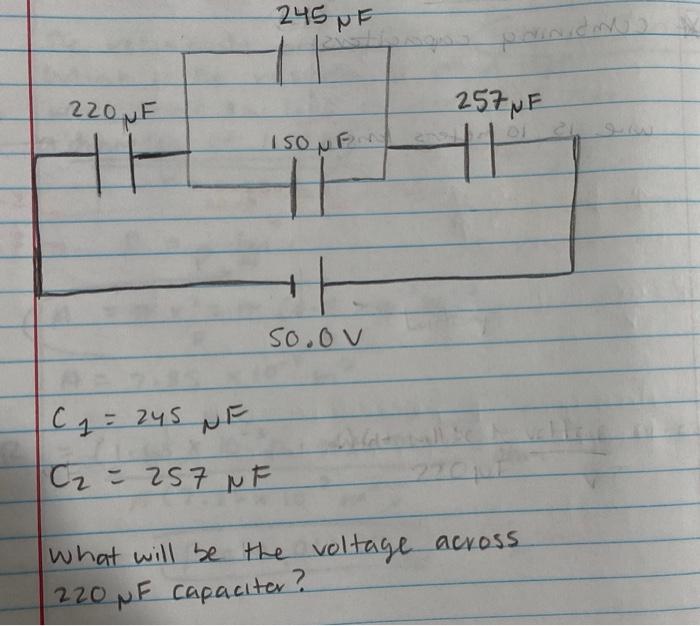 245 µF
220 µF
257 µF
150 µF
50.0 V
C1 = 245 µF
C2 = 257 µF
What will be the voltage across
220 µF capacitor?